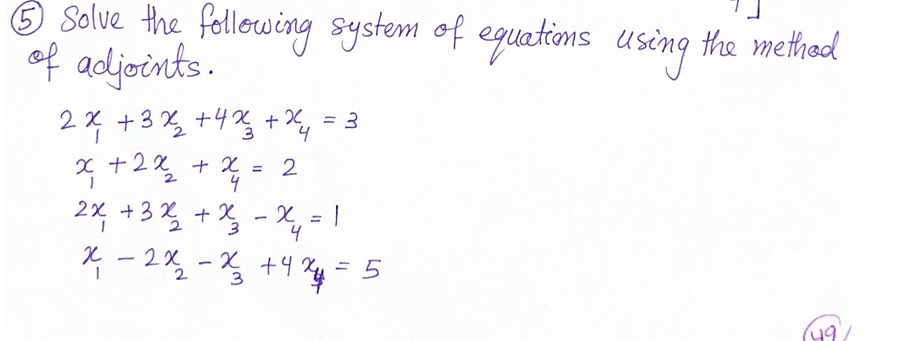 ⑤ Solve the following system of equations using the method
of adjoints.
2x₁ + 3x₂ + 4x₃ + x₄ = 3
x₁ + 2x₂ + x₄ = 2
2x₁ + 3x₂ + x₃ - x₄ = 1
x₁ - 2x₂ - x₃ + 4x₄ = 5
49